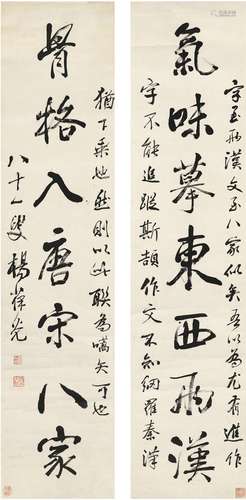 字至兩漢文至八家似矣吾以為尤有進作
氣味摹東西兩漢
字不能追蹤斯頡作文不知網羅秦漢
猶下乘也然則以此聯為嚆矢可也
骨格入唐宋八家
八十一叟楊